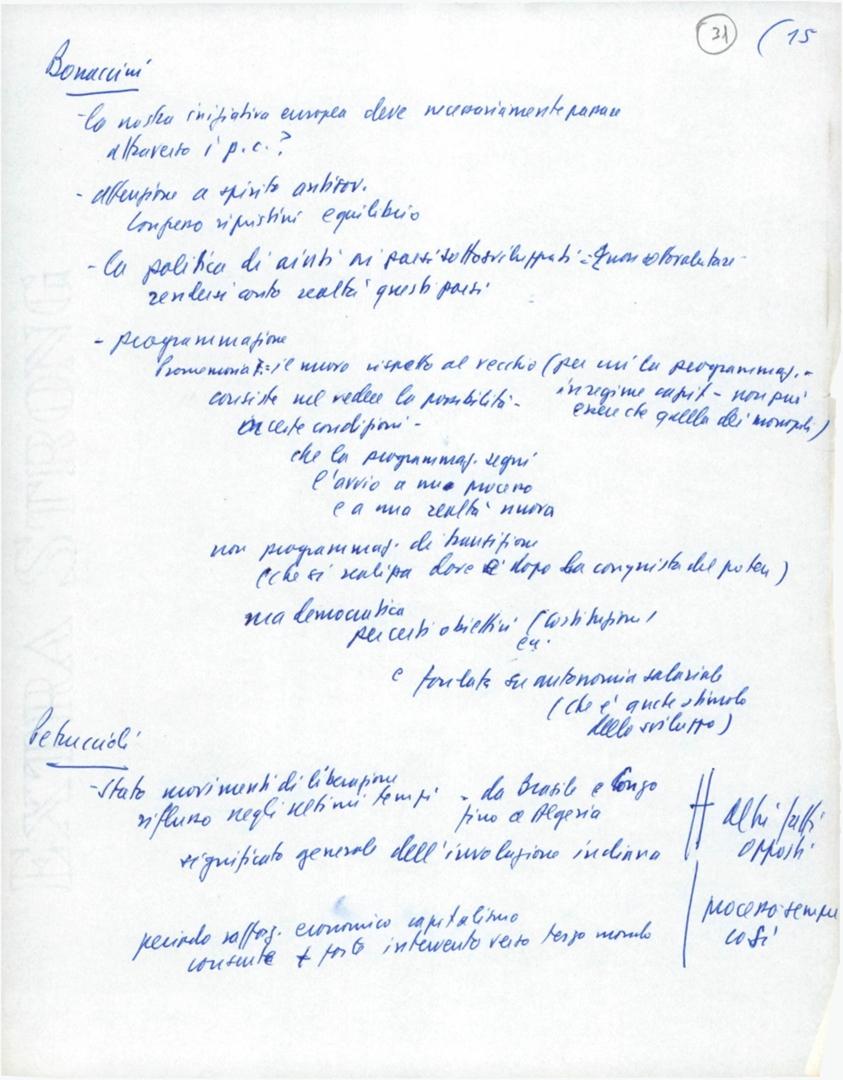 31 (15
Bonaccini
- la nostra iniziativa europea deve necessariamente passare
attraverso i p.c.?
- attenzione a spirito antisov.
Congresso ripristini equilibrio
- la politica di aiuti ai paesi sottosviluppati: non sottovalutare
rendersi conto realtà questi paesi
- programmazione
Promemoria: il nuovo rispetto al vecchio (per cui la programmaz. -
consiste nel vedere la possibilità - in regime capit. - non può
in certe condizioni - essere che quella dei monopoli)
che la programmaz. segni
l'avvio a un processo
e a una realtà nuova
non programmaz. di transizione
(che si realizza dove è dopo la conquista del potere)
ma democratica
per certi obiettivi (Costituzione)
ecc.
e fondata su autonomia salariale
(che è anche stimolo
dello sviluppo)
Petruccioli
- Stato movimenti di liberazione
riflusso negli ultimi tempi - da Brasile e Congo
fino a Algeria
altri fatti
opposti
significato generale dell'involuzione indiana
periodo rafforz. economico capitalismo
consente + forte intervento verso terzo mondo
processo sempre
così